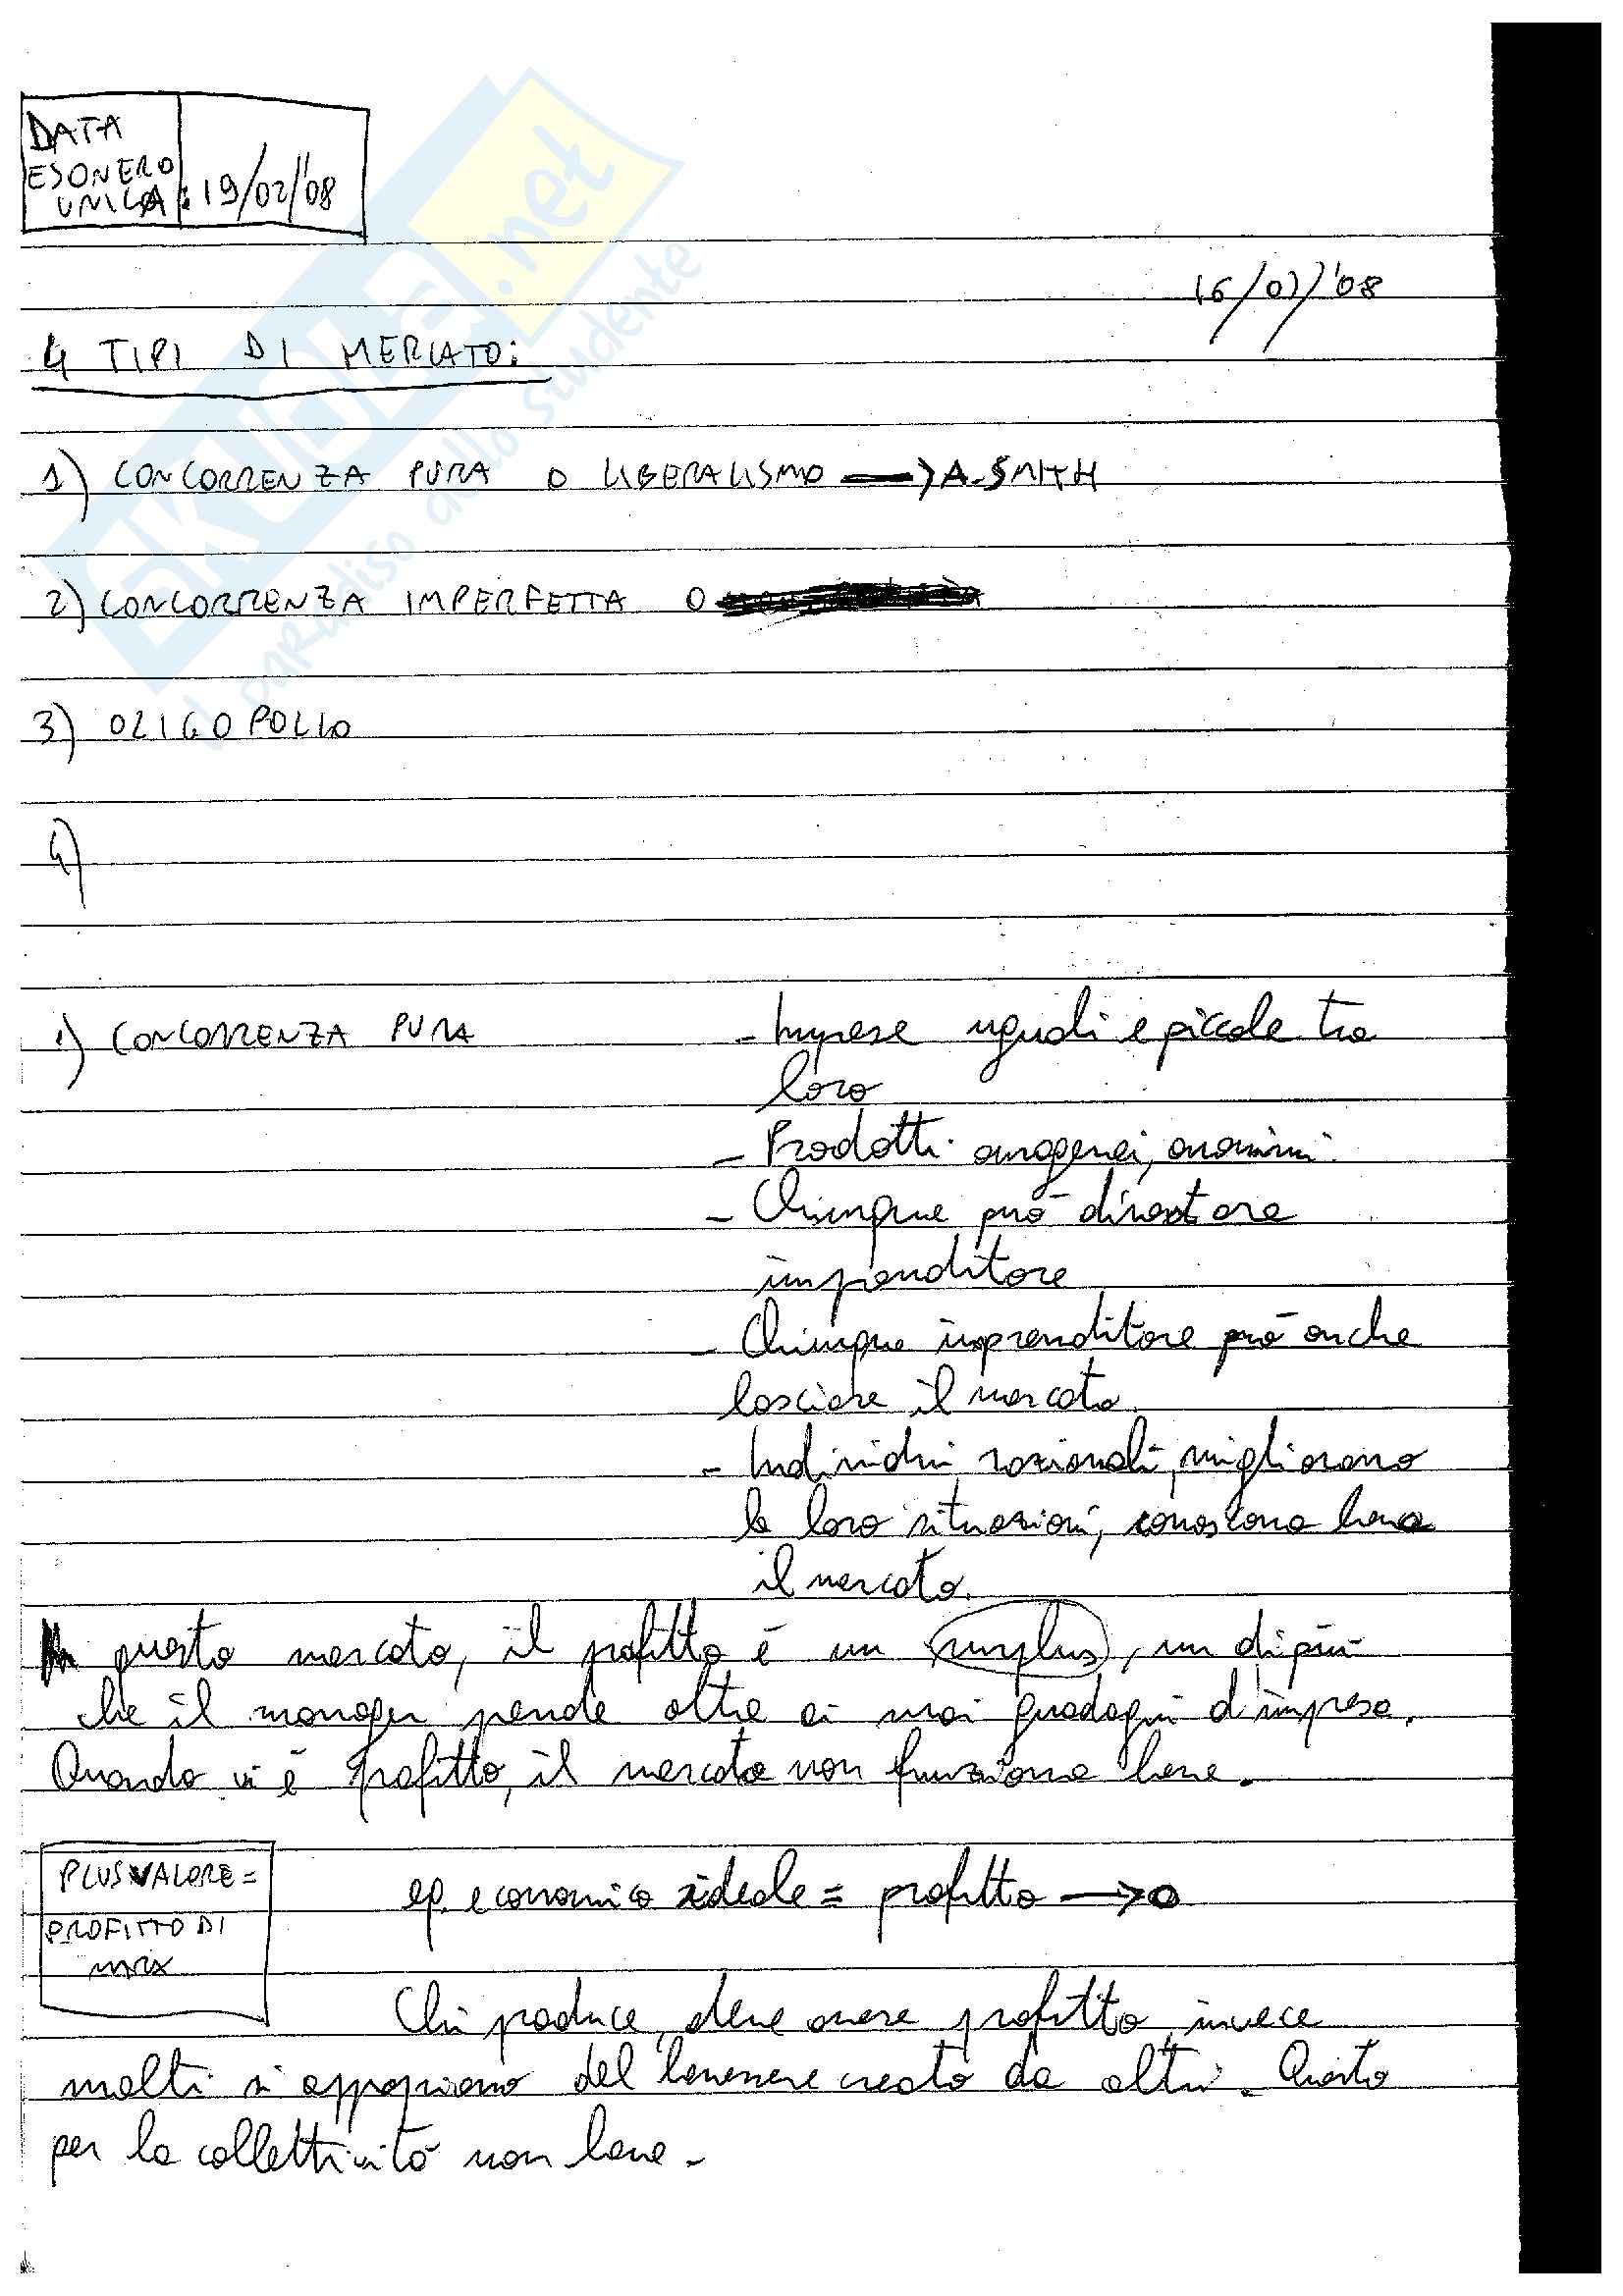 DATA
ESONERO
UNICA: 19/02/'08
16/01/'08
4 TIPI DI MERCATO:
1) CONCORRENZA PURA O LIBERALISMO → A. SMITH
2) CONCORRENZA IMPERFETTA O
3) OLIGOPOLIO
4)
1) CONCORRENZA PURA
- Imprese uguali e piccole tra
loro
- Prodotti omogenei, anonimi.
- Chiunque può diventare
imprenditore
- Chiunque imprenditore può anche
lasciare il mercato.
- Individui razionali, migliorano
le loro situazioni, conoscono bene
il mercato.
In questo mercato, il profitto è un surplus, un di più
che il manager prende oltre ai suoi guadagni d'impresa.
Quando vi è profitto, il mercato non funziona bene.
PLUSVALORE =
PROFITTO DI
MRX
eq. economico ideale = profitto → 0
Chi produce, deve avere profitto, invece
molti si appropriano del benessere creato da altri. Questo
per la collettività non bene.
skuola.net
il paradiso dello studente